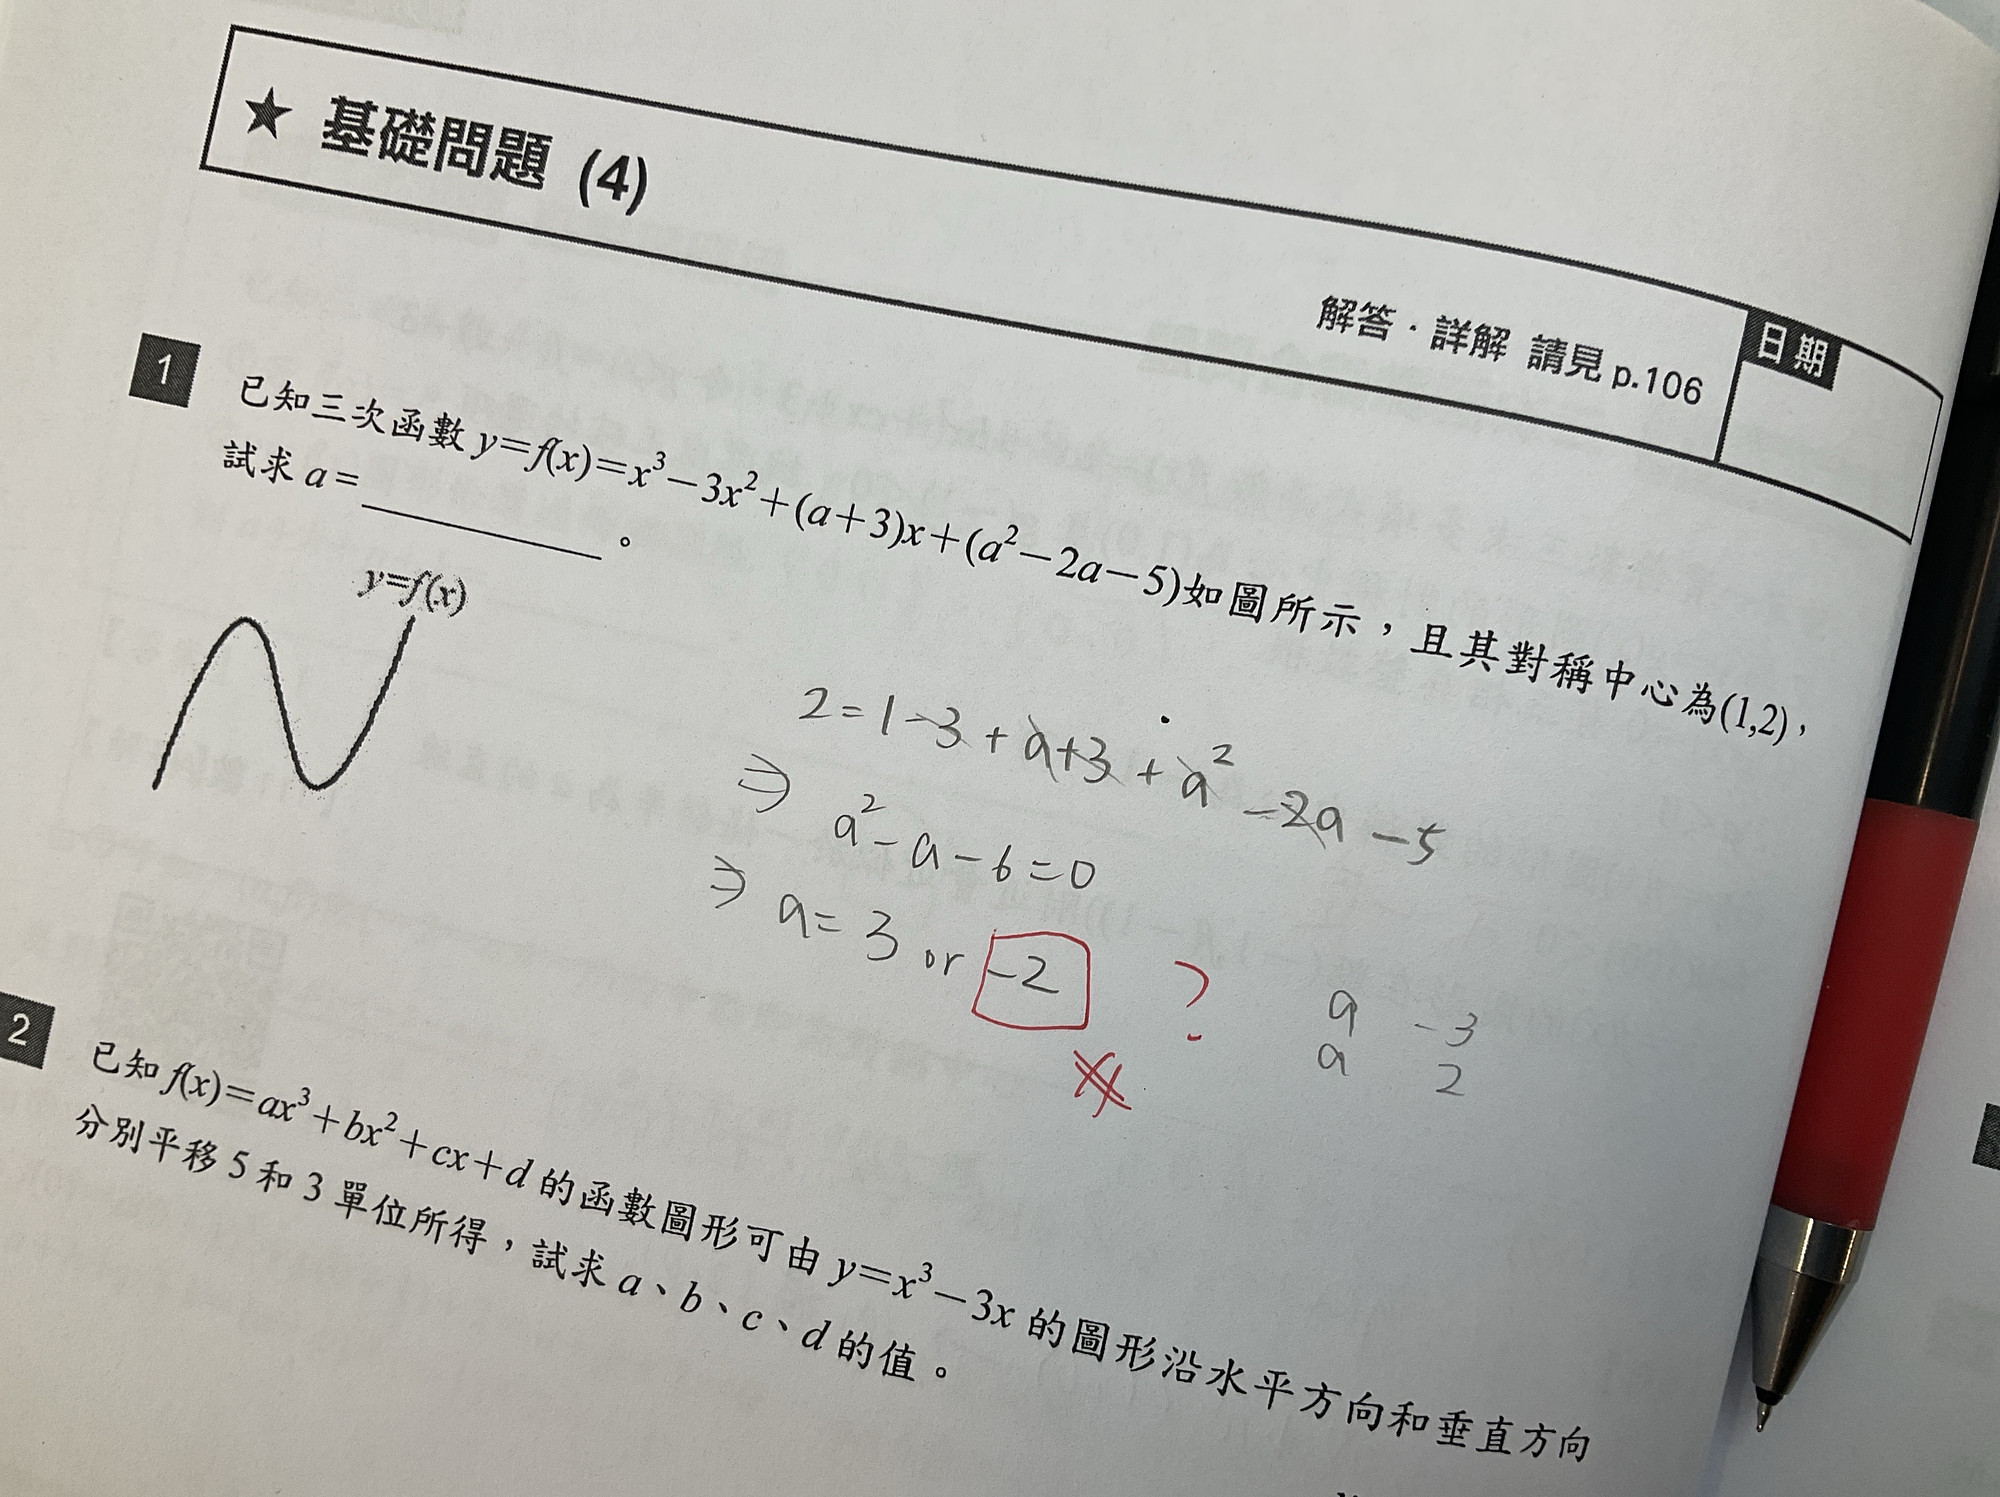 ★ 基礎問題 (4)
解答．詳解 請見 p.106
日期
1
已知三次函數 y=f(x)=x³−3x²+(a+3)x+(a²−2a−5)如圖所示，且其對稱中心為(1,2)，
試求 a=＿＿＿＿＿。
y=f(x)
2=1-3+a+3+a²-2a-5
⇒ a²-a-6=0
⇒ a=3 or -2 ?
a -3
a 2
2
已知 f(x)=ax³+bx²+cx+d 的函數圖形可由 y=x³−3x 的圖形沿水平方向和垂直方向
分別平移 5 和 3 單位所得，試求 a、b、c、d 的值。